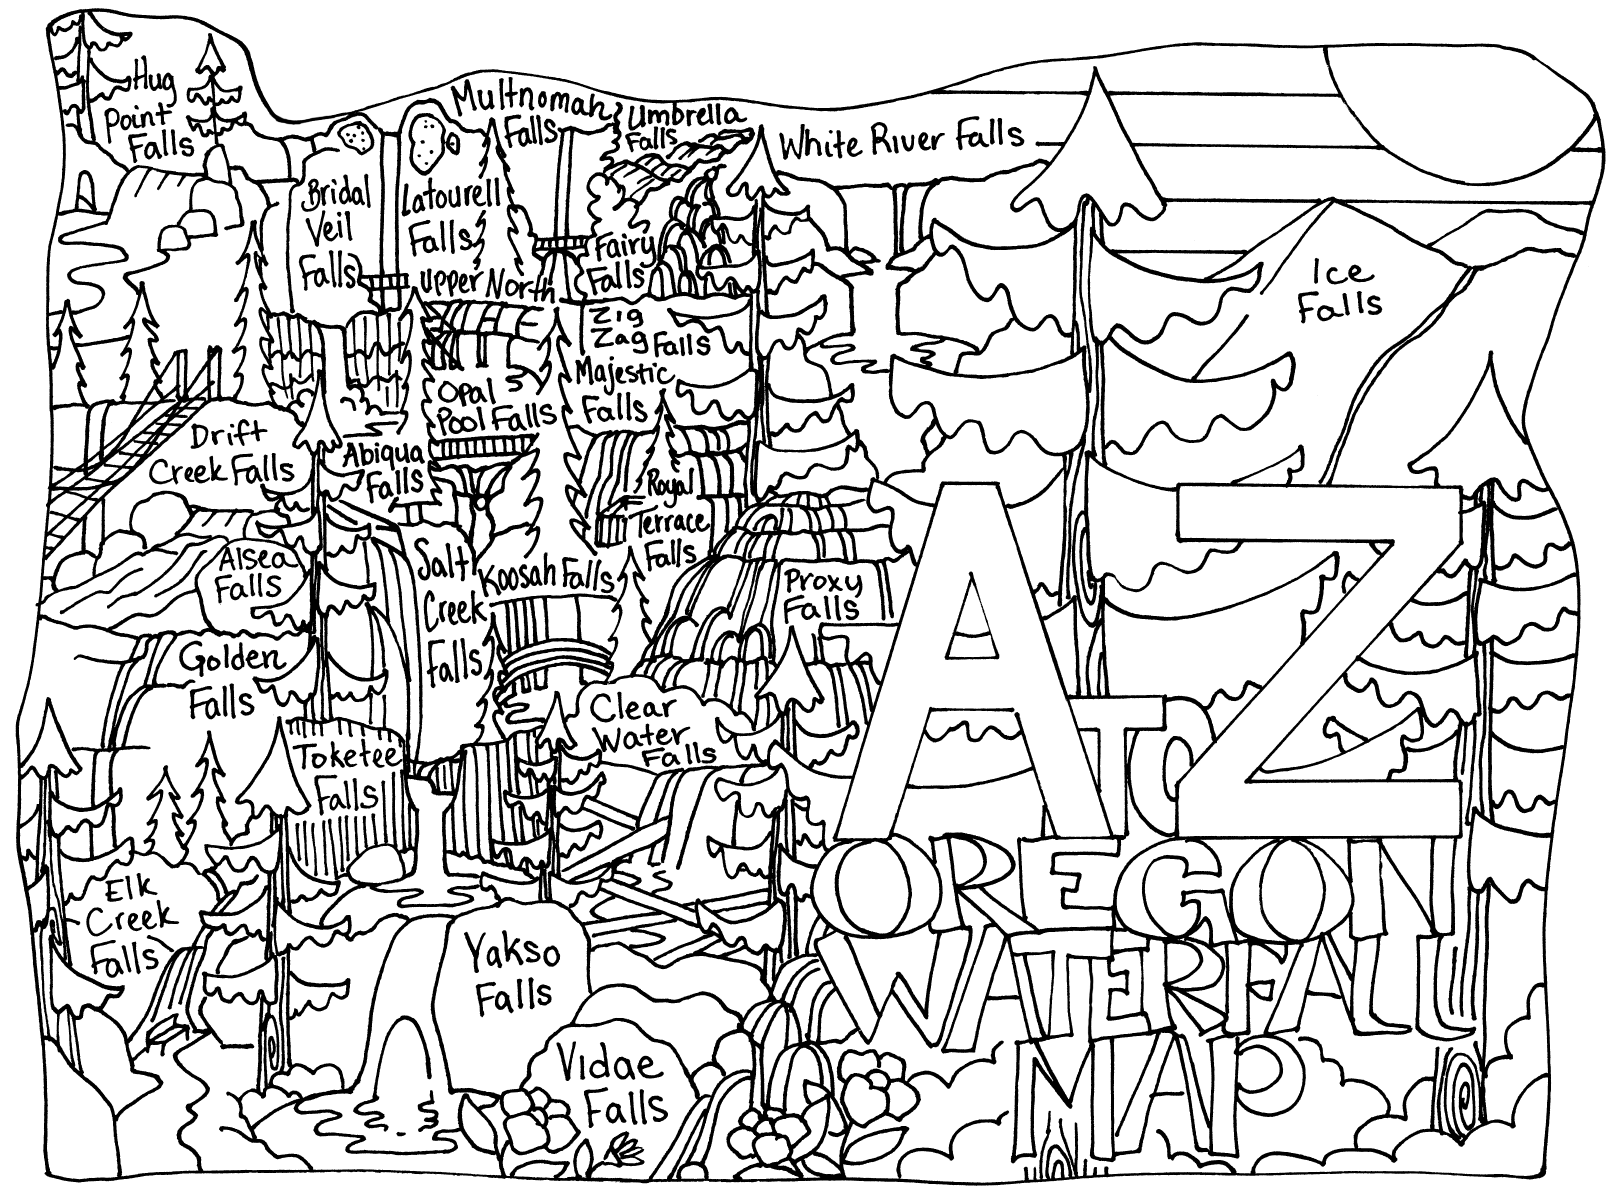 Hug
Point
Falls
Multnomah
Falls
Umbrella
Falls
White River Falls
Bridal
Veil
Falls
Latourell
Falls
Fairy
Falls
Upper North
Ice
Falls
Zig
Zag Falls
Majestic
Falls
Opal
Pool Falls
Drift
Creek Falls
Abiqua
Falls
Royal
Terrace
Falls
Alsea
Falls
Salt
Creek
Falls
Koosah Falls
Proxy
Falls
Golden
Falls
Clear
Water
Falls
Toketee
Falls
Elk
Creek
Falls
Yakso
Falls
Vidae
Falls
A TO Z
OREGON
WATERFALL
MAP